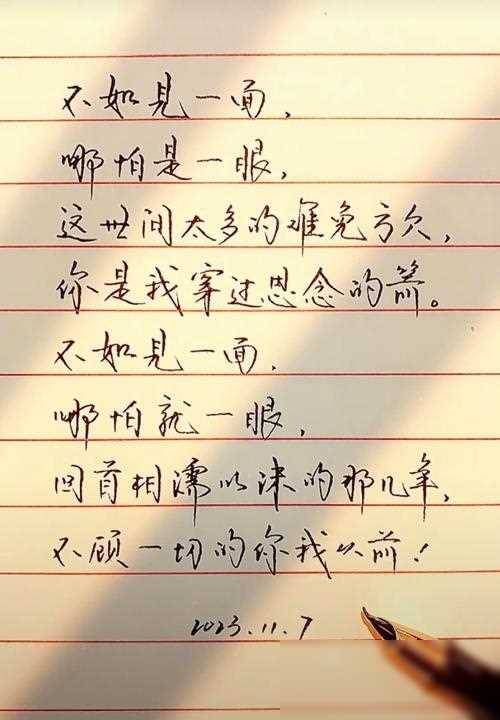 不如見一面，
哪怕是一眼，
这世间太多的难免亏欠，
你是我穿过思念的箭。
不如見一面，
哪怕就一眼，
回首相濡以沫的那几年，
不顾一切的你我从前！
2023.11.7